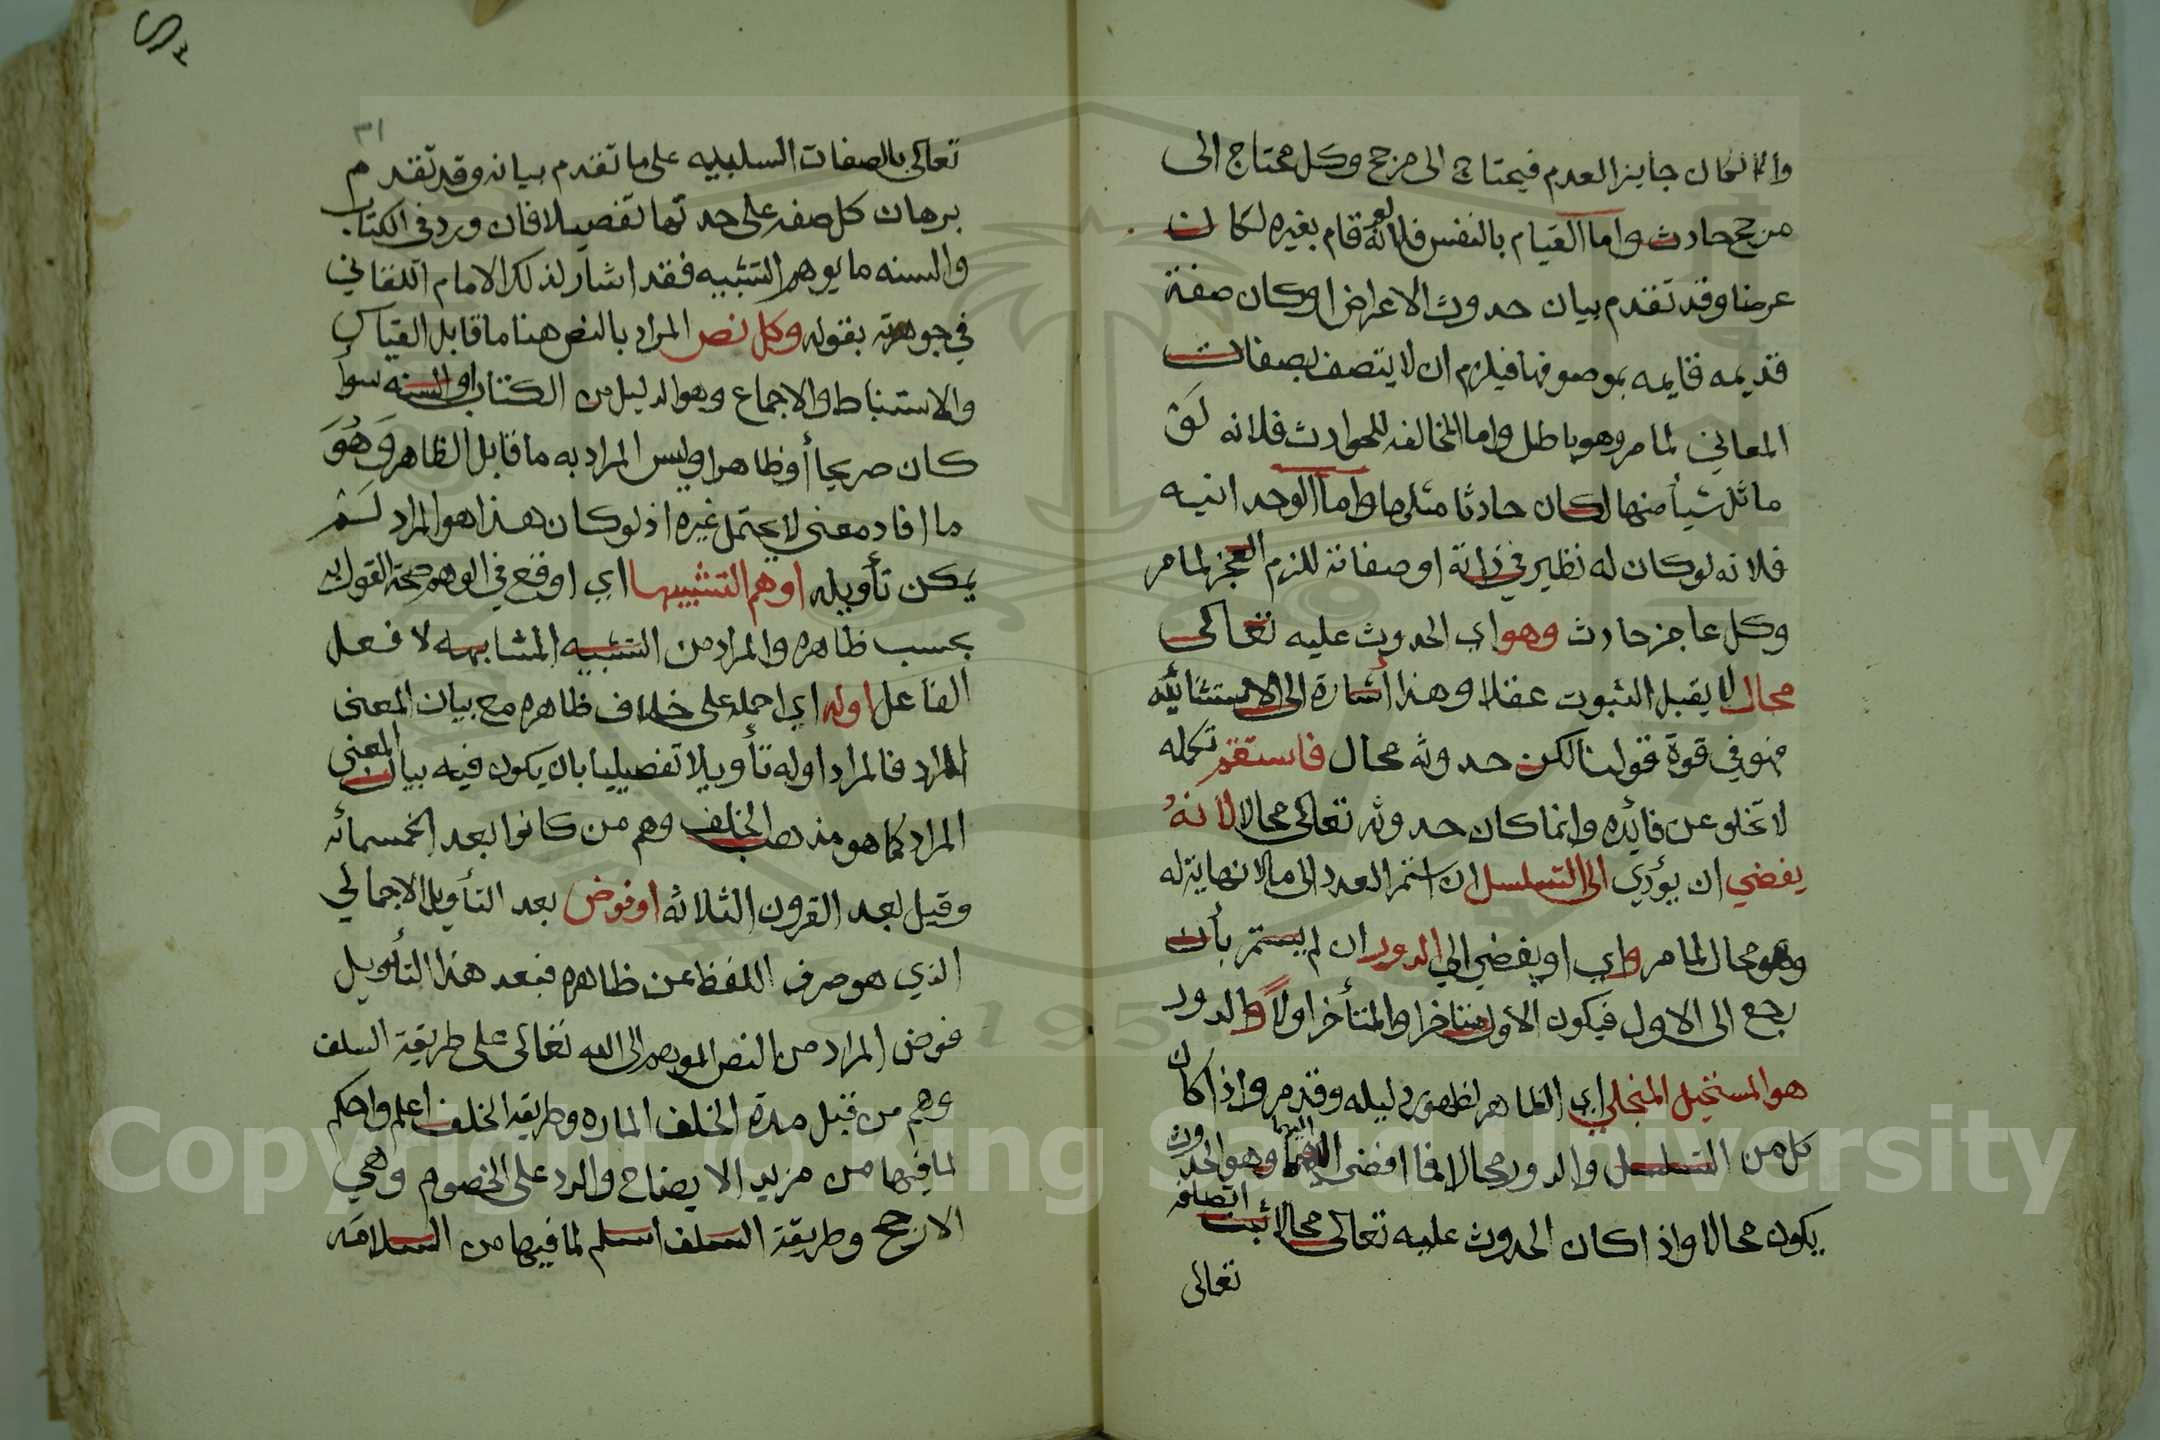 والا لكان جايز العدم فيحتاج الى مرجح وكل محتاج الى
مرجح حادث واما القيام بالنفس فلانه لو قام بغيره لكان
عرضا وقد تقدم بيان حدوث الاعراض اوكان صفة
قديمه قايمه بموصوفها فيلزم ان لا يتصف بصفات
المعاني لما مر وهو باطل واما المخالفه للحوادث فلانه لو
ماثل شيأ منها لكان حادثا مثلها واما الوحدانيه
فلانه لوكان له نظير في ذاته او صفاته للزم العجز لما مر
وكل عاجز حادث وهو اي الحدوث عليه تعالى
محال لا يقبل الثبوت عقلا وهذا أشارة الى الاستثنائيه
فهو في قوة قولنا لكن حدوثه محال فاستقم تكمله
لا تخلو عن فائده وانما كان حدوثه تعالى محالا لانهُ
يفضي ان يؤدي الى التسلسل ان استمر العدد الى ما لا نهاية له
وهو محال لما مر واي او يفضي الي الدور ان لم يستمر بأن
رجع الى الاول فيكون الاول متأخرا والمتأخر اولا والدور
هو المستحيل المنجلي اي الظاهر لظهور دليله وقد مر واذا كان
كل من التسلسل والدور محالا فما افضى اليهما وهو الحدوث
يكون محالا واذا كان الحدوث عليه تعالى محالا ثبت اتصافه
تعالى
٣١
تعالى بالصفات السلبيه على ما تقدم بيانه وقد تقدم
برهان كل صفه على حدتها تفصيلا فان ورد في الكتاب
والسنه ما يوهم التشبيه فقد اشار لذلك الامام اللقاني
في جوهرته بقوله وكل نص المراد بالنص هنا ما قابل القياس
والاستنباط والاجماع وهو الدليل من الكتاب او السنه سوأ
كان صريحا أو ظاهرا وليس المراد به ما قابل الظاهر وَهُوَ
ما افاد معنى لا يحتمل غيره اذ لو كان هذا هو المراد لَمْ
يمكن تأويله اوهم التشبيها اي اوقع في الوهم صحة القول به
بحسب ظاهره والمراد من التشبيه المشابهه لا فعل
الفاعل اوله اي احمله على خلاف ظاهره مع بيان المعنى
المراد فالمراد اوله تأويلا تفصيليا بان يكون فيه بيان المعنى
المراد كما هو مذهب الخلف وهم من كانوا بعد الخمسمائه
وقيل بعد القرون الثلاثه او فوض بعد التأويل الاجمالي
الذي هو صرف اللفظ عن ظاهره فبعد هذا التأويل
فوض المراد من النص الموهم الى الله تعالى على طريقة السلف
وهم من قبل مدة الخلف الماره وطريقه الخلف اعلم واحكم
لما فيها من مزيد الايضاح والرد على الخصوم وهي
الارجح وطريقة السلف اسلم لما فيها من السلامه
Copyright © King Saud University
195